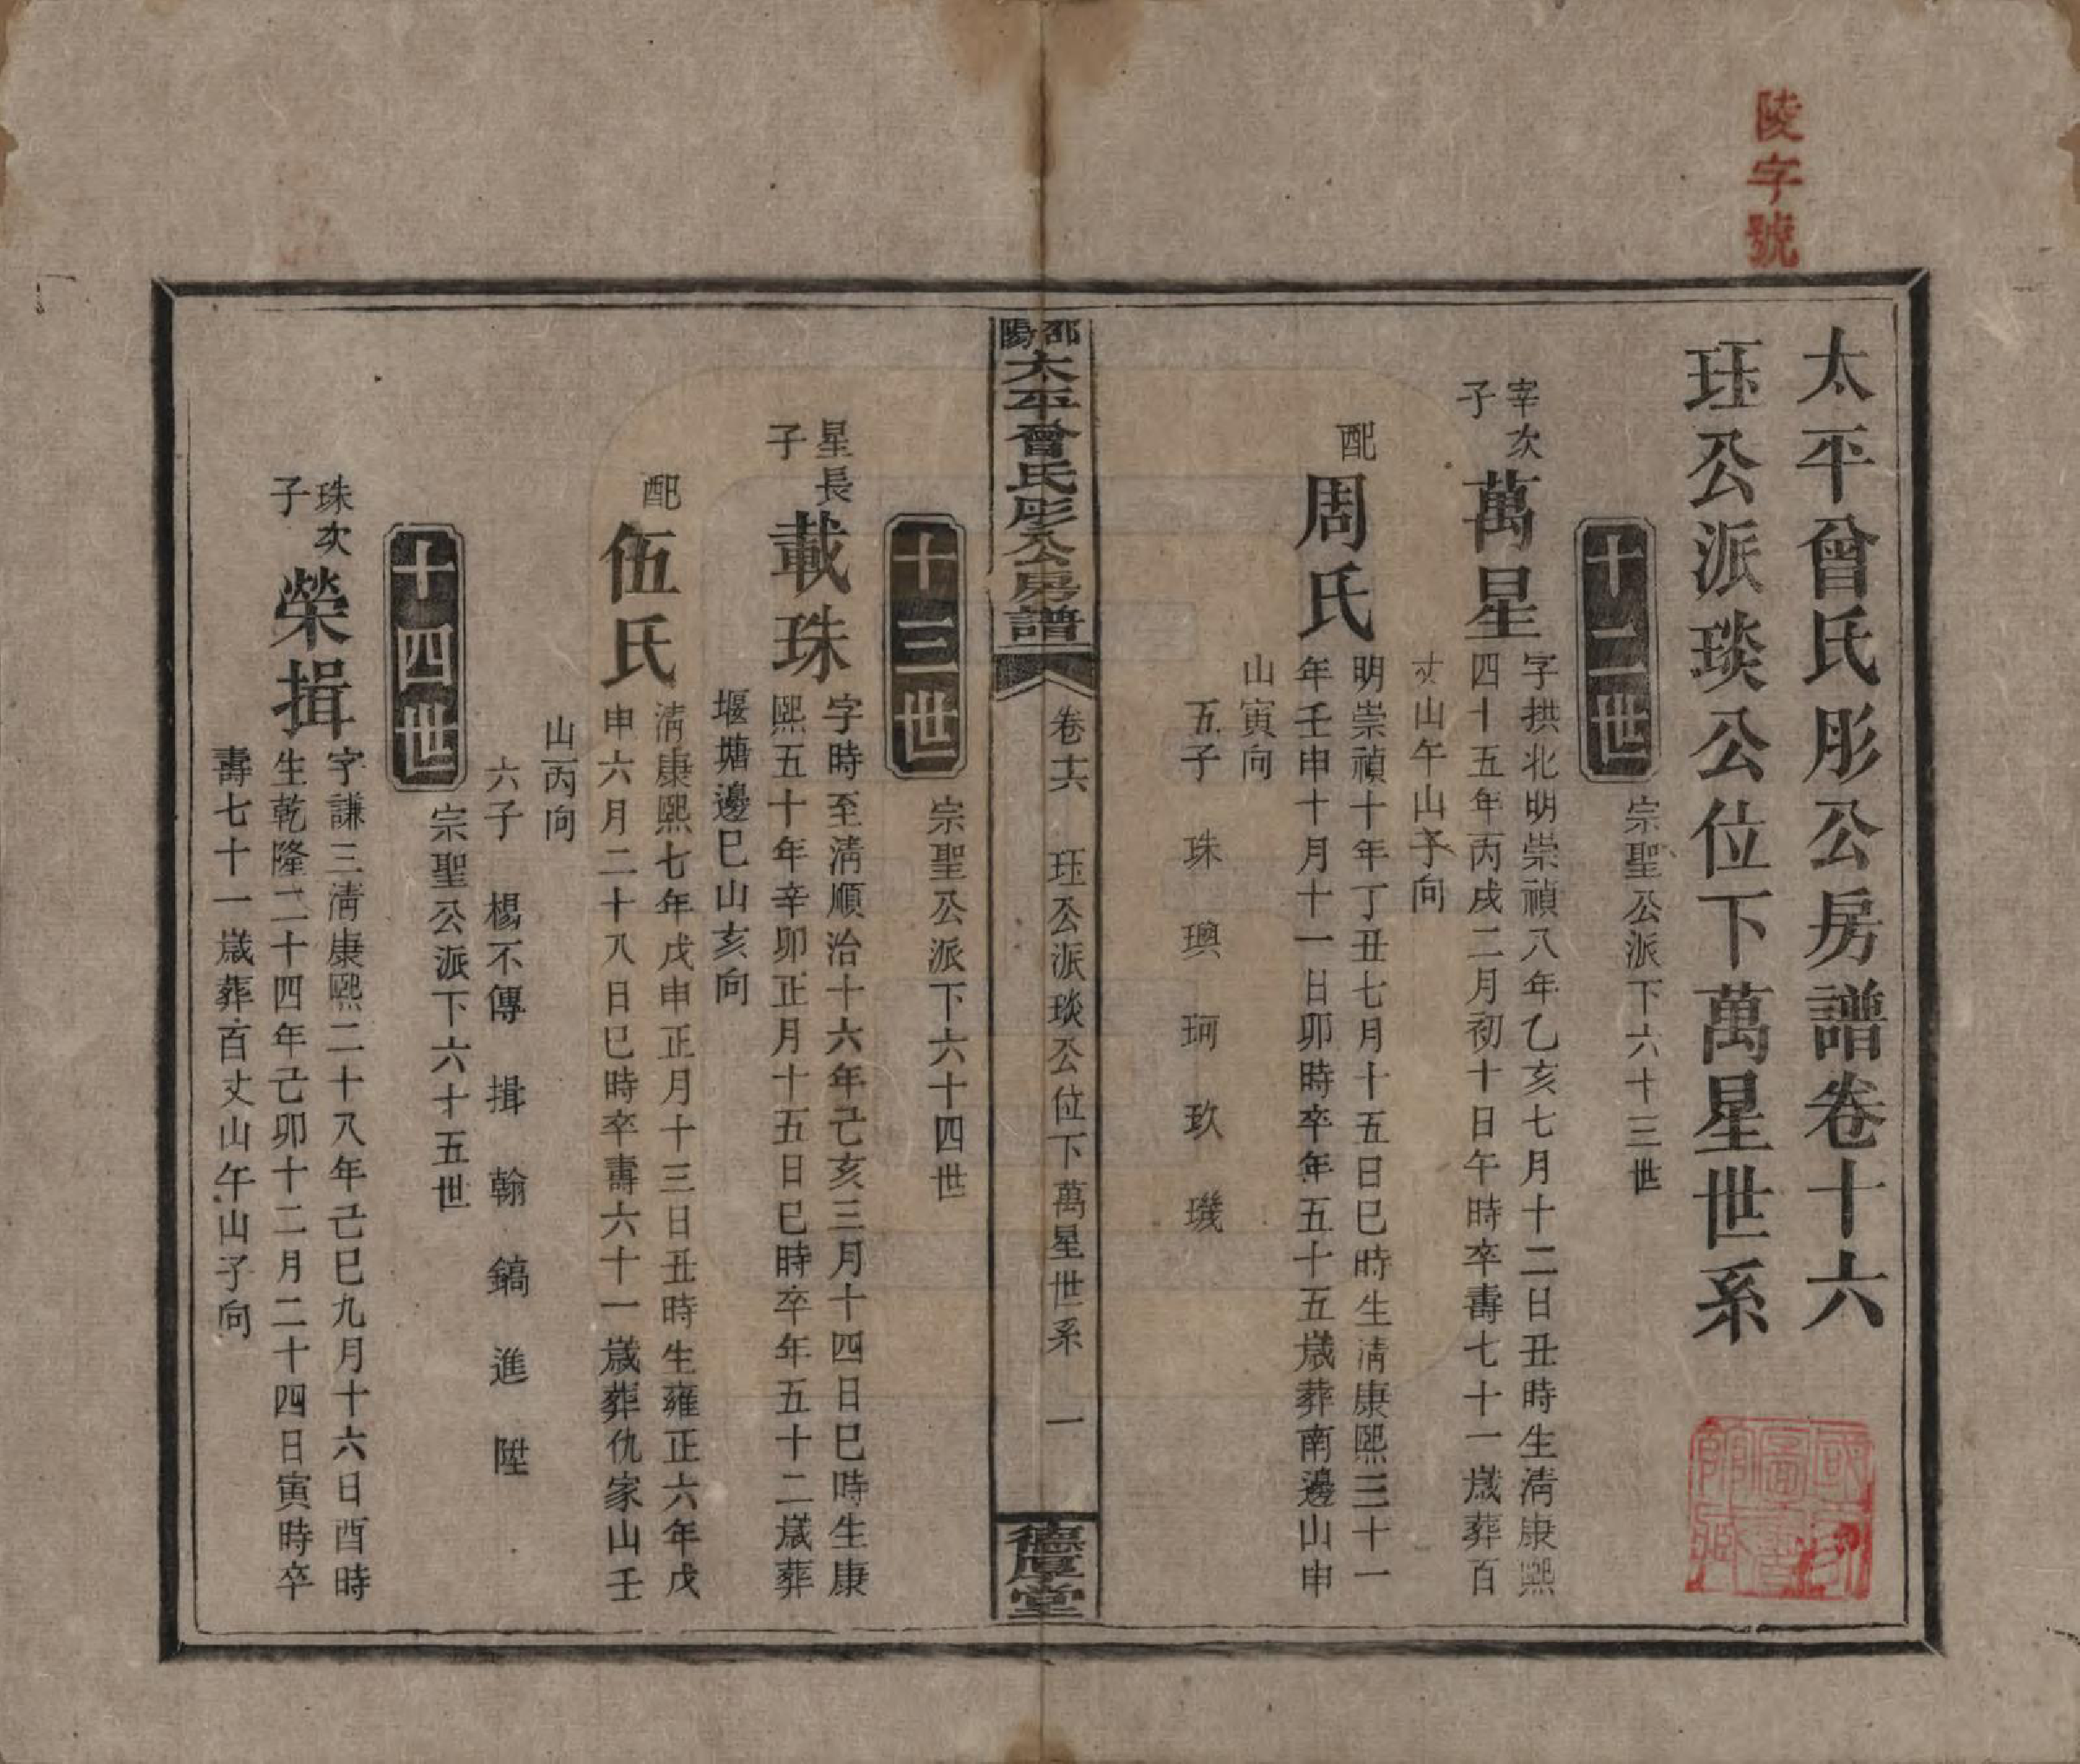 陵字號
太平曾氏彤公房譜卷十六
珏公派琰公位下萬星世系
十二世
宗聖公派下六十三世
宰次
子
萬星
字拱北明崇禎八年乙亥七月十二日丑時生淸康熙
四十五年丙戌二月初十日午時卒壽七十一歲葬百
丈山午山子向
配
周氏
明崇禎十年丁丑七月十五日巳時生淸康熙三十一
年壬申十月十一日卯時卒年五十五歲葬南邊山申
山寅向
五子 珠 璵 珂 玖 璣
邵陽
太平曾氏彤公房譜
卷十六 珏公派琰公位下萬星世系 一
德厚堂
十三世
宗聖公派下六十四世
星長
子
載珠
字時至淸順治十六年己亥三月十四日巳時生康
熙五十年辛卯正月十五日巳時卒年五十二歲葬
堰塘邊巳山亥向
配
伍氏
淸康熙七年戊申正月十三日丑時生雍正六年戊
申六月二十八日巳時卒壽六十一歲葬仇家山壬
山丙向
六子 楊不傳 揖 翰 鎬 進 陞
十四世
宗聖公派下六十五世
珠次
子
榮揖
字謙三淸康熙二十八年己巳九月十六日酉時
生乾隆二十四年己卯十二月二十四日寅時卒
壽七十一歲葬百丈山午山子向
國家圖書館藏